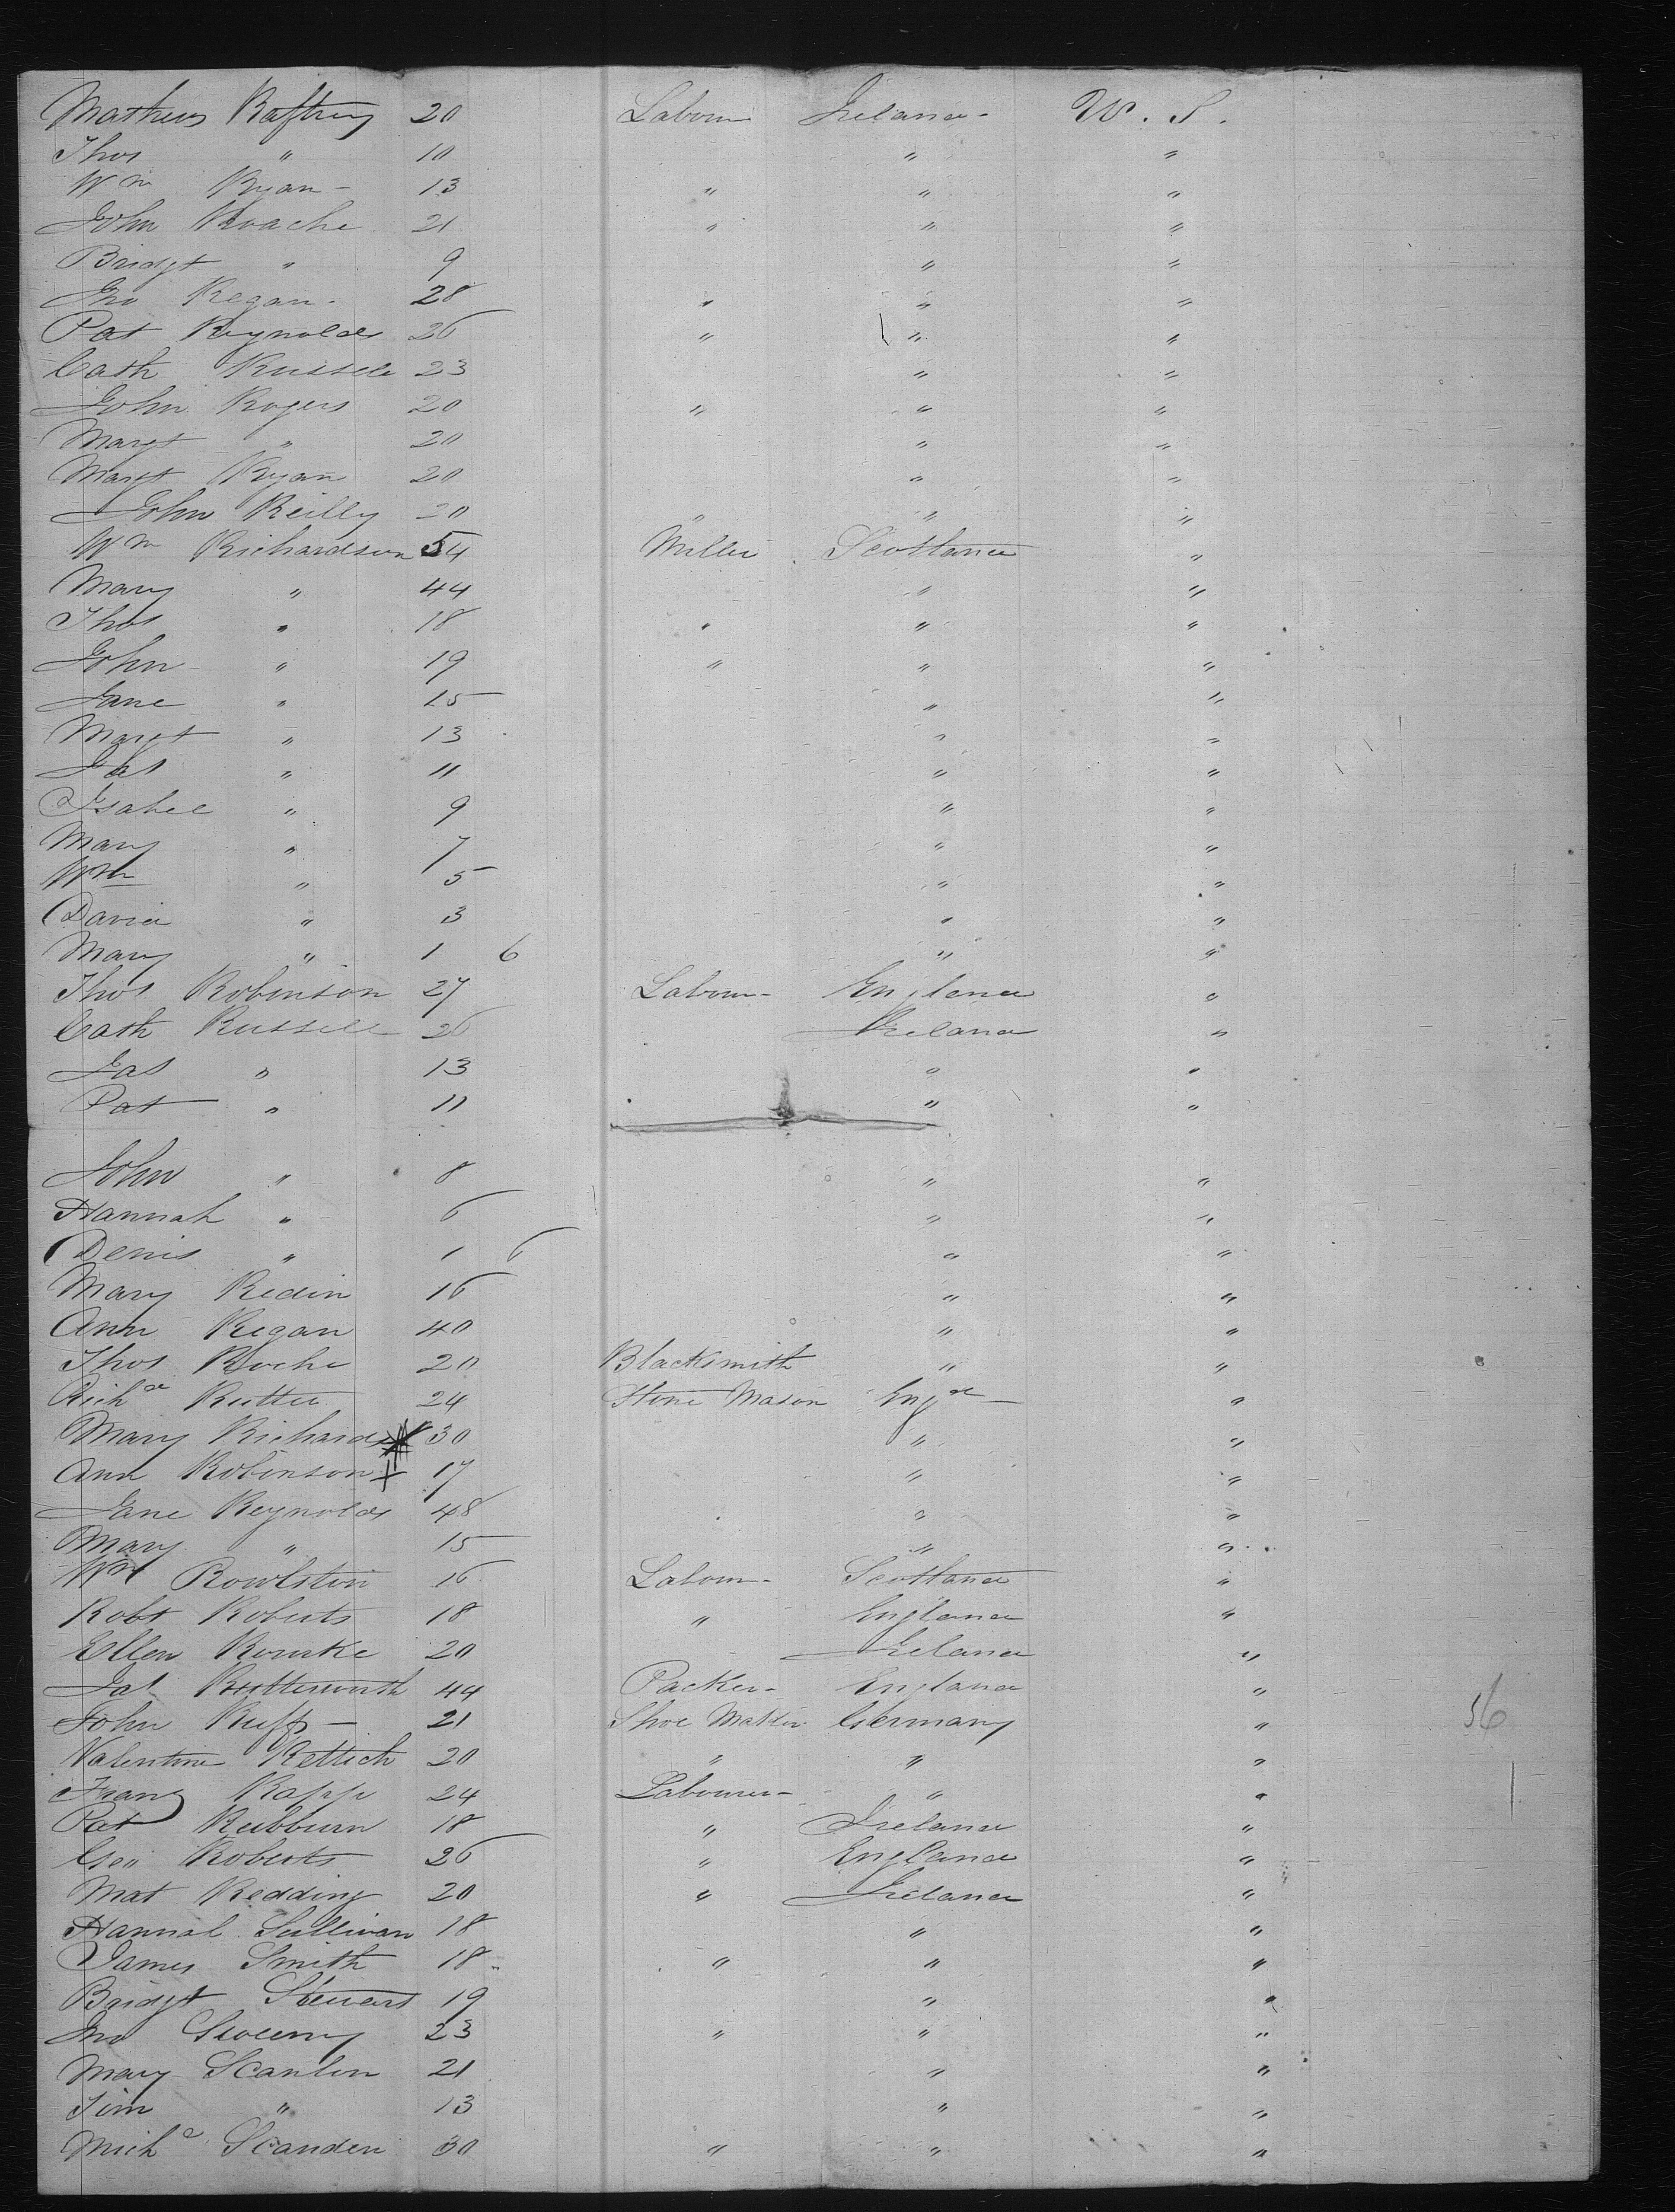 Mathew Raftrey 20 Labour Ireland - U. S.
Thos " 10 " "
Wm Ryan - 13 " " "
John Roache 21 " " "
Bridgt " 9 " "
Jno Regan - 28 " " "
Pat Reynolds 26 " " "
Cath Russell 23 " "
John Rogers 20 " " "
Margt " 20 " "
Margt Ryan 20 " "
John Reilly 20 " " "
Wm Richardson 54 Miller Scotland "
Mary " 44 " "
Thos " 18 " " "
John " 19 " " "
Jane " 15 " "
Margt " 13 " "
Jas " 11 " "
Isabel " 9 " "
Mary " 7 " "
Wm " 5 " "
David " 3 " "
Mary " 1 6 " "
Thos Robinson 27 Labour - England "
Cath Russell 26 Ireland "
Jas " 13 " "
Pat " 11 " "
John " 8 " "
Hannah " 6 " "
Denis " 1 6 " "
Mary Redin 16 " "
Ann Regan 40 " "
Thos Roche 20 Blacksmith " "
Richd Rutter 24 Stone Mason Engd "
Mary Richards 30 " "
Ann Robinson + 17 " "
Jane Reynolds 48 " "
Mary " 15 " "
Wm Rowlston 16 Labour - Scotland "
Robt Roberts 18 " England "
Ellen Rourke 20 Ireland "
Jas Rutterworth 44 Packer - England "
John Ruff - 21 Shoe Maker Germany "
Valentine Rettich 20 " " "
Franz Rapp 24 Labourer - " "
Pat Rubburn 18 " Ireland "
Geo Roberts 26 " England "
Mat Redding 20 " Ireland "
Hannah Sullivan 18 " "
James Smith 18 " " "
Bridgt Stewart 19 " "
Jno 23 " " "
Mary Scanlon 21 " "
Tim " 13 " "
Michl Scanden 30 " " "
56